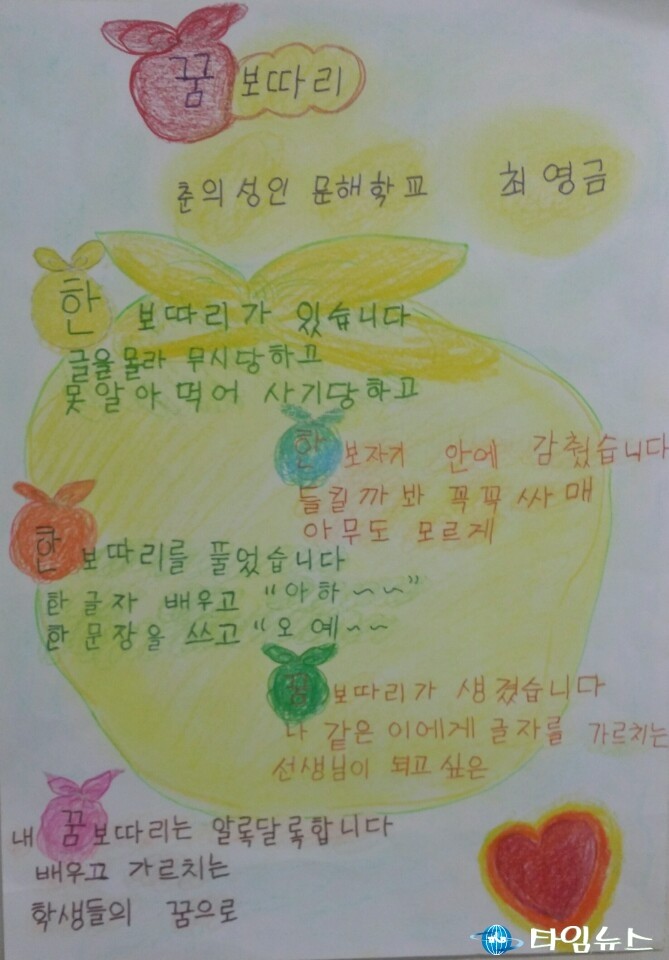 꿈 보따리
춘의성인 문해학교 최영금
한 보따리가 있습니다
글을몰라 무시당하고
못알아 먹어 사기당하고
한 보자기 안에 감췄습니다
들킬까봐 꼭꼭 싸매
아무도 모르게
한 보따리를 풀었습니다
한글자 배우고 "아하~~"
한문장을 쓰고 "오예~~
꿈 보따리가 생겼습니다
나 같은 이에게 글자를 가르치는
선생님이 되고 싶은
내 꿈보따리는 알록달록합니다
배우고 가르치는
학생들의 꿈으로
타임뉴스